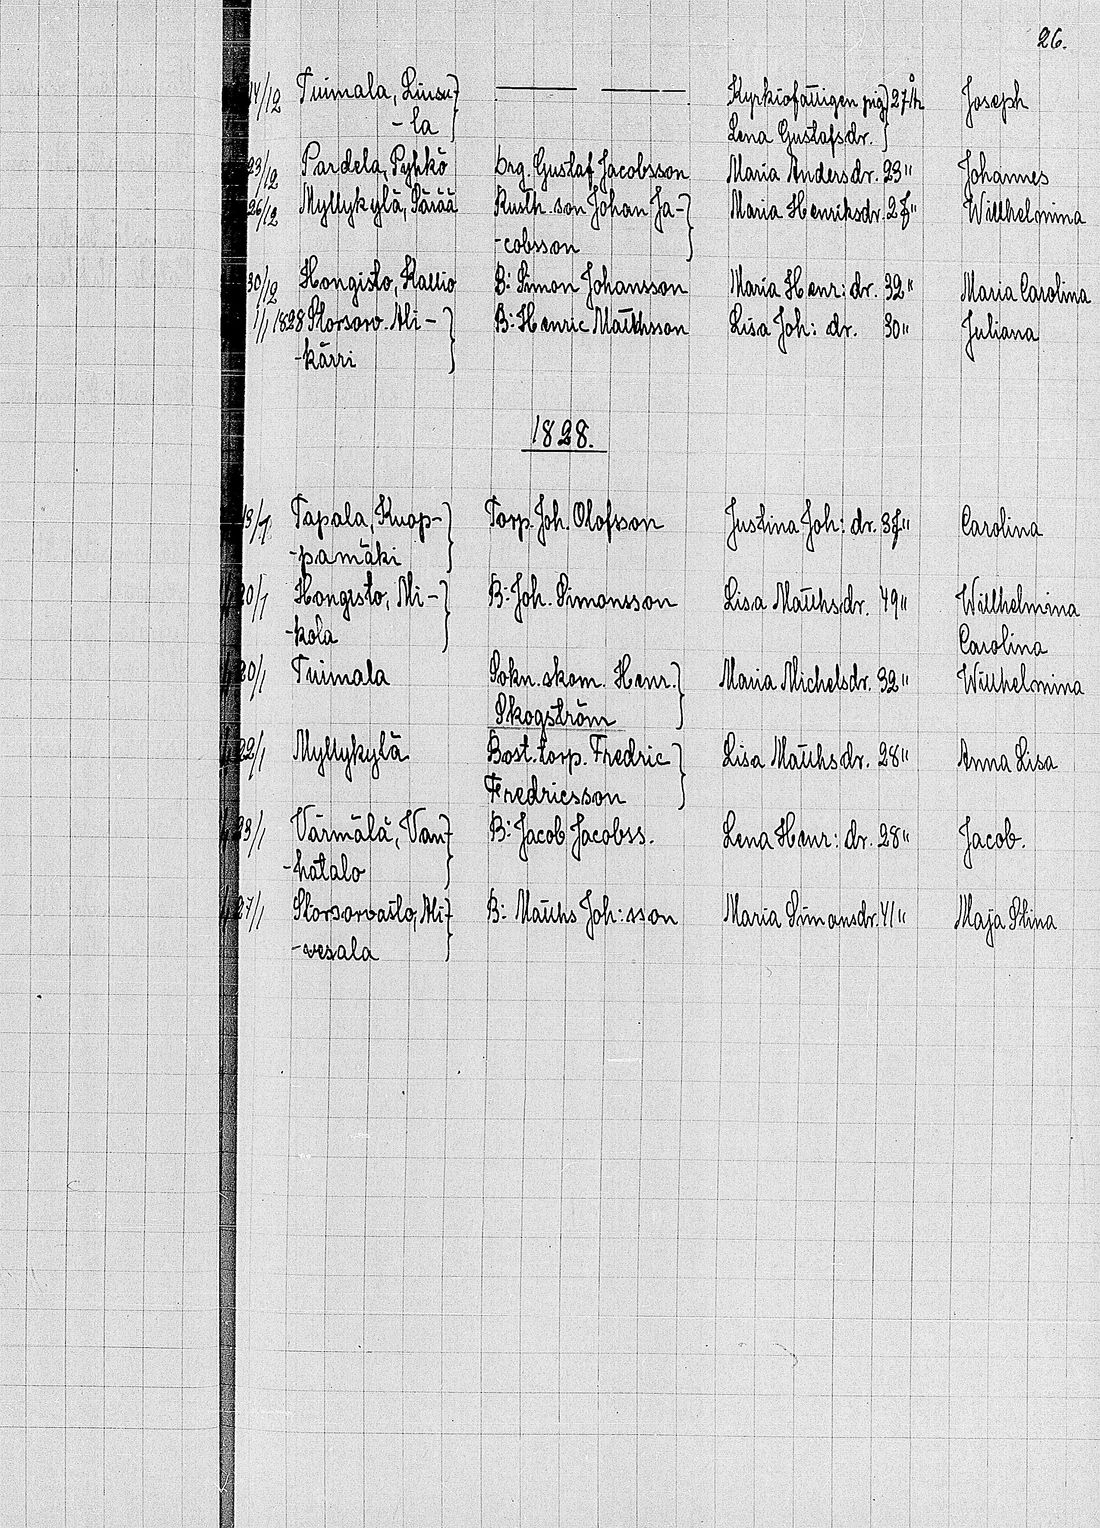 26.
14/12 Tuimala, Liusu- — — Kyrkiofattigen pig. 27 år Joseph
-la Lena Gustafsdr.
23/12 Pardela, Pyhkö Drg. Gustaf Jacobsson Maria Andersdr. 23" Johannes
26/12 Myllykylä, Särää Rusth. son Johan Ja- Maria Henriksdr. 27" Willhelmina
-cobsson
30/12 Hongisto, Kallio B: Simon Johansson Maria Henr: dr. 32" Maria Carolina
1/1 1828 Storsarv. Ali- B: Henric Matthsson Lisa Joh: dr. 30" Juliana
-kärri
1828.
18/1 Tapala, Knap- Torp. Joh. Olofsson Justina Joh: dr. 37" Carolina
-pamäki
20/1 Hongisto, Mi- B: Joh. Simonsson Lisa Matthsdr. 49" Willhelmina
-kola Carolina
20/1 Tuimala Sokn. skom. Henr. Maria Michelsdr. 32" Willhelmina
Skogström
22/1 Myllykylä Bost. torp. Fredric Lisa Matthsdr. 28" Anna Lisa
Fredricsson
23/1 Värmälä, Van- B: Jacob Jacobss. Lena Henr: dr. 28" Jacob.
-hatalo
27/1 Storsarvasto, Ali- B: Matths Joh: sson Maria Simonsdr. 41" Maja Stina
-vesala